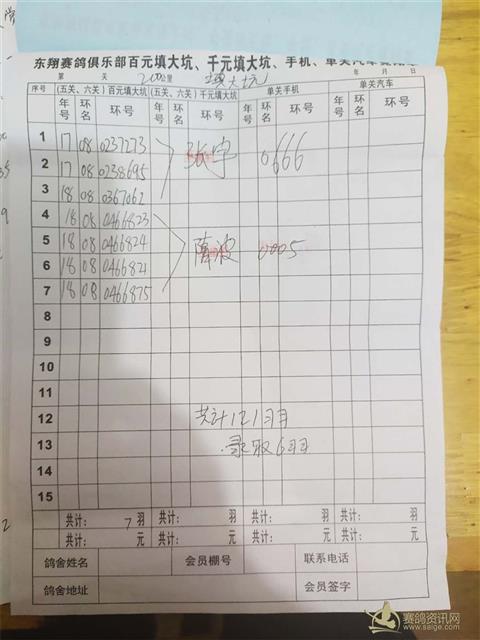 东翔赛鸽俱乐部百元填大坑、千元填大坑、手机、单关汽车
第 天 200公里 填大坑 年 月 日
序号 (五关、六关)百元填大坑 (五关、六关)千元填大坑 单关手机 单关汽车
年号 环名 环号 年号 环名 环号 年号 环名 环号 年号 环名 环号
1 17 08 0237273
2 17 08 0238695 张宇 0666
3 18 08 0367062
4 18 08 0466823
5 18 08 0466824 陈波 0005
6 18 08 0466821
7 18 08 0466875
8
9
10
11
12 共计121羽
13 录取6羽
14
15
共计: 7 羽 共计: 羽 共计: 羽 共计: 羽
共计: 元 共计: 元 共计: 元 共计: 元
鸽舍姓名 会员棚号 联系电话
鸽舍地址 会员签字
赛鸽资讯网
www.saige.com